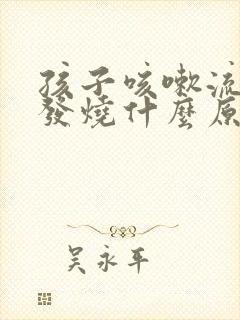 孩子咳嗽流
發燒什麼原
吳永平